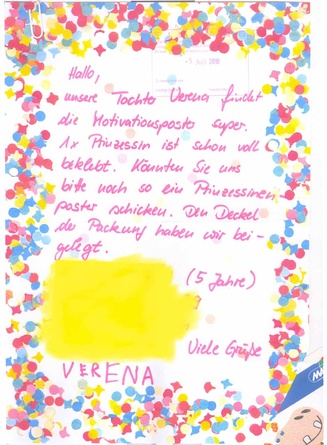 - 5. Juli 2010
Hallo,
unsere Tochter Verena findet
die Motivationsposter super.
1x Prinzessin ist schon voll
beklebt. Könnten Sie uns
bitte noch so ein Prinzessinen
poster schicken. Den Deckel
der Packung haben wir bei-
gelegt.
(5 Jahre)
Viele Grüße
VERENA